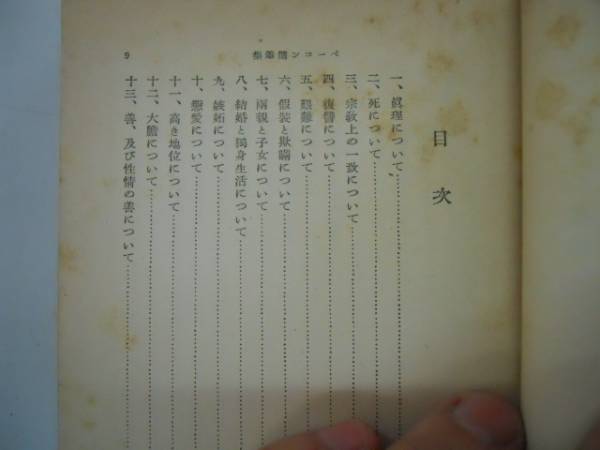 ベーコン随筆集
9
目次
一、眞理について
二、死について
三、宗敎上の一致について
四、復讐について
五、艱難について
六、假裝と欺瞞について
七、兩親と子女について
八、結婚と獨身生活について
九、嫉妬について
十、戀愛について
十一、高き地位について
十二、大膽について
十三、善、及び性情の善について